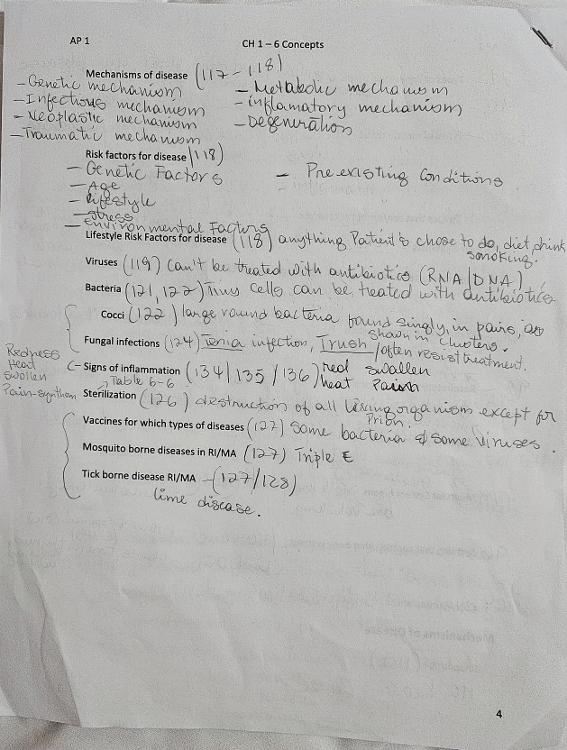 AP 1
CH 1 – 6 Concepts
Mechanisms of disease (117 - 118)
- Genetic mechanism
- Metabolic mechanism
- Infectious mechanism
- inflamatory mechanism
- Neoplastic mechanism
- Degeneration
- Traumatic mechanism
Risk factors for disease (118)
- Genetic Factors
- Pre existing Conditions
- Age
- Lifestyle
- Stress
- environmental Factors
Lifestyle Risk Factors for disease (118) anything Patient's chose to do, diet, drink
smoking.
Viruses (119) can't be treated with antibiotics (RNA/DNA)
Bacteria (121, 122) Tiny cells can be treated with antibiotics
Cocci (122) large round bacteria found singly, in pairs,
shown in clusters.
Fungal infections (124) Tenia infection, Trush / often resist treatment.
Redness
Heat
Swollen
Pain
Signs of inflammation (134/135/136) red swollen
Table 6-6 heat Pain
Sterilization (126) destruction of all living organism except for
Prion.
Vaccines for which types of diseases (127) Some bacteria & some Viruses.
Mosquito borne diseases in RI/MA (127) Triple E
Tick borne disease RI/MA - (127/128)
lime disease.
4